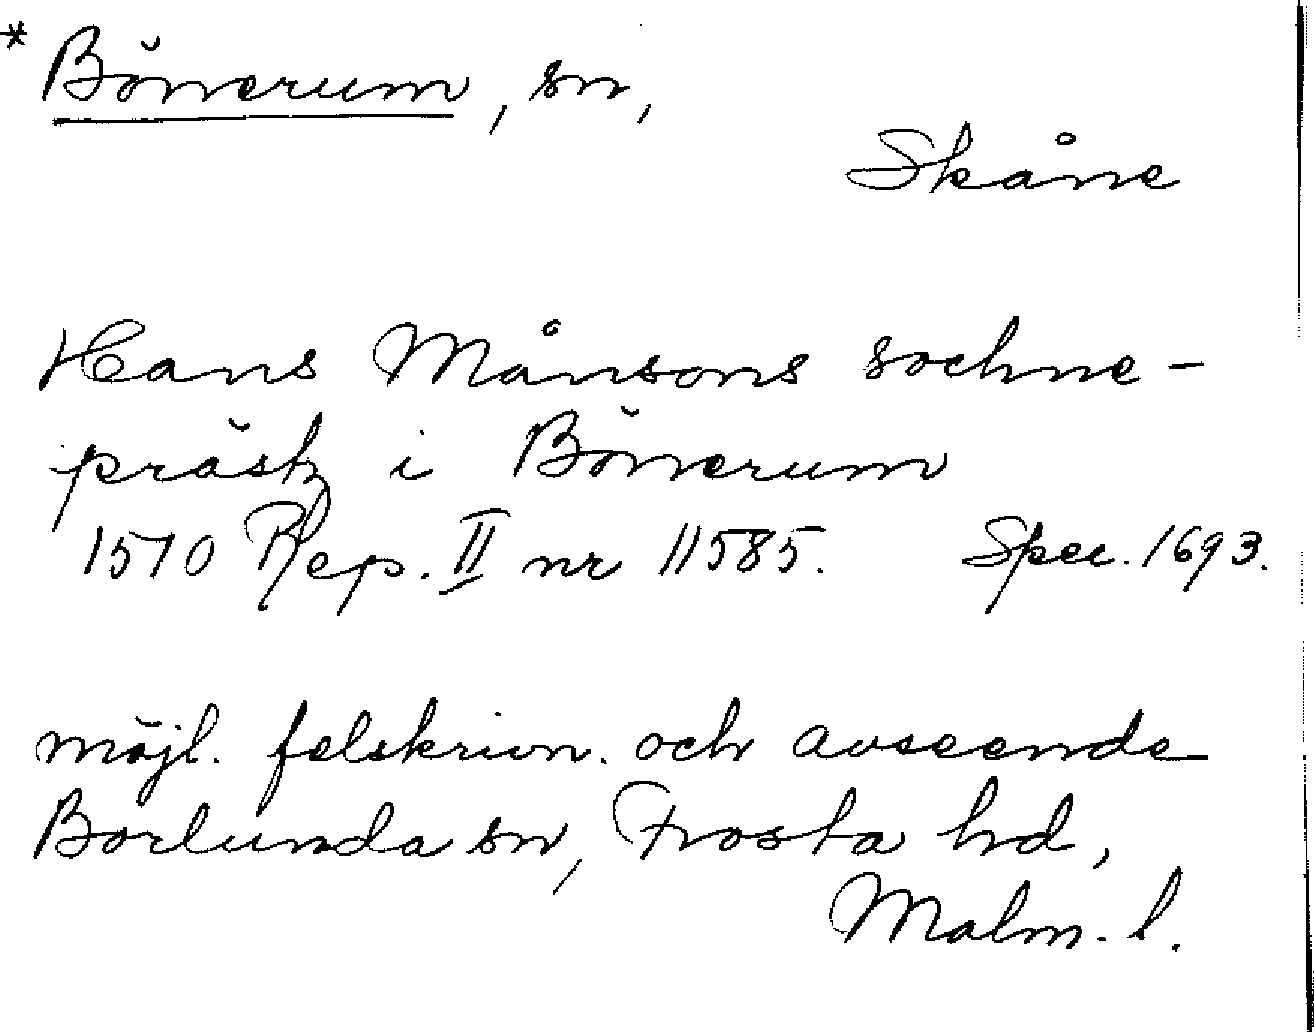 * Bönerum, sn,
Skåne
Hans Månsons sochne-
prästz i Bönerum
1570 Rep. II nr 11585. Spec. 1693.
möjl. felskrivn. och avseende
Borlunda sn, Frosta hd,
Malm. l.